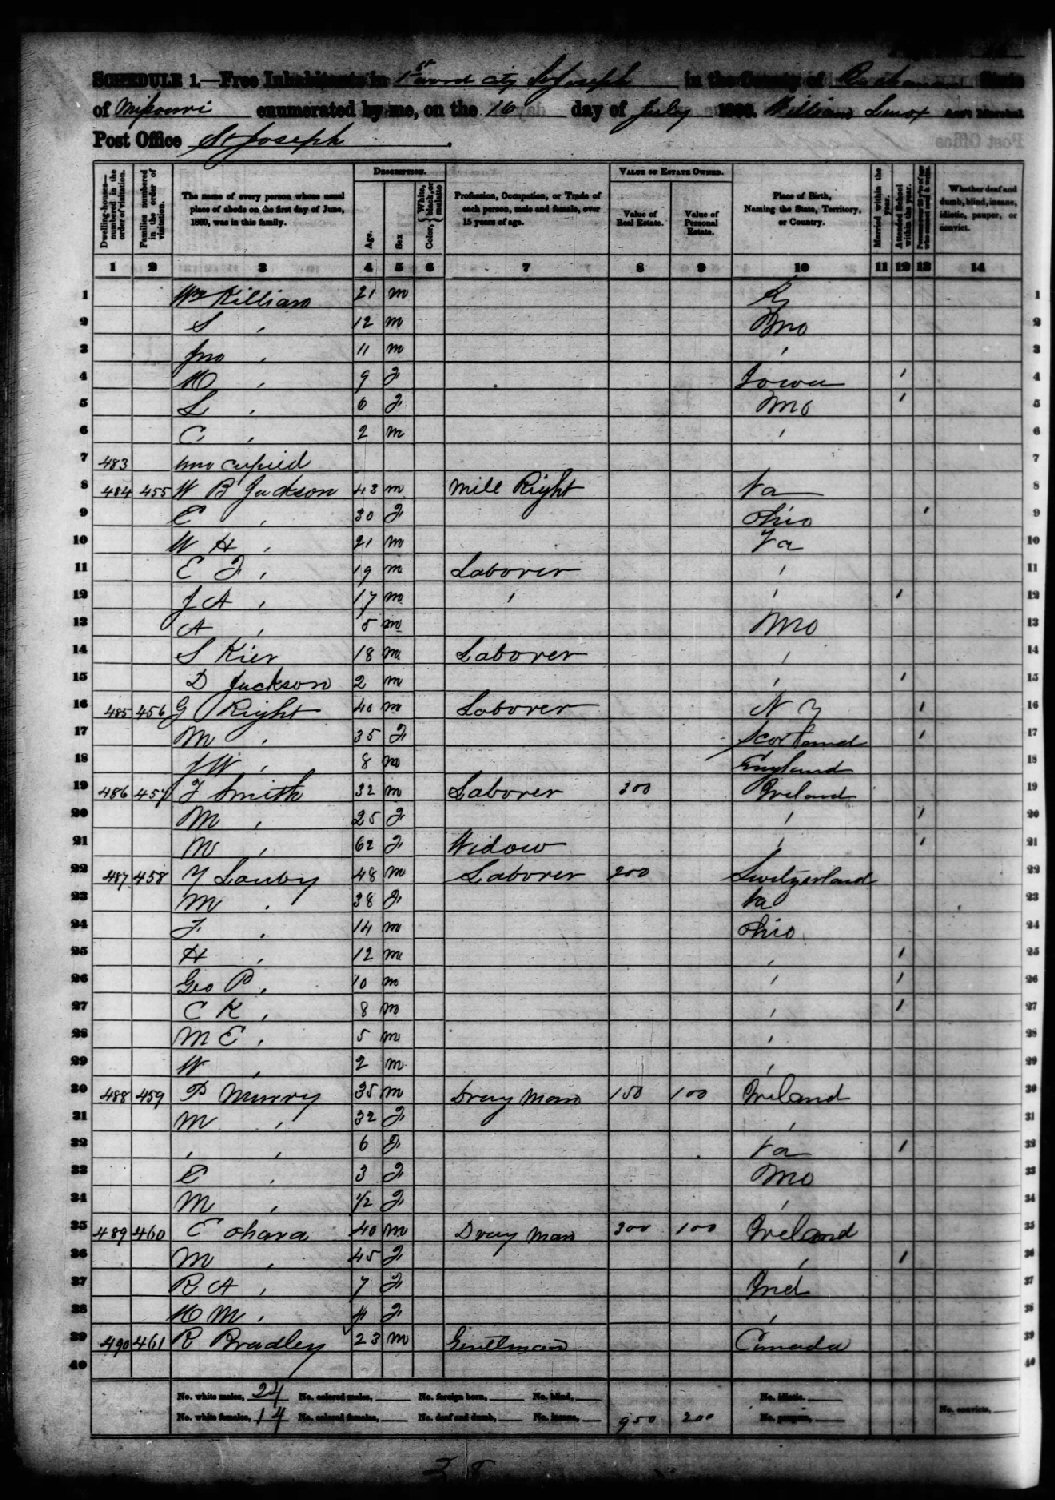 SCHEDULE 1.—Free Inhabitants in 1st Ward City St Joseph in the County of State
of Missouri enumerated by me, on the 16 day of July 1860. William Ass't Marshal
Post Office St Joseph
Dwelling-houses—numbered in the order of visitation.
Families numbered in the order of visitation.
The name of every person whose usual place of abode on the first day of June, 1860, was in this family.
DESCRIPTION.
Age.
Sex
Color, White, black, or mulatto
Profession, Occupation, or Trade of each person, male and female, over 15 years of age.
VALUE OF ESTATE OWNED.
Value of Real Estate.
Value of Personal Estate.
Place of Birth, Naming the State, Territory, or Country.
Married within the year.
Attended School within the year.
Whether deaf and dumb, blind, insane, idiotic, pauper, or convict.
1 2 3 4 5 6 7 8 9 10 11 12 13 14
1 Wm Killian 21 m 1
2 S , 12 m Mo 2
3 Jno , 11 m , 3
4 M , 9 F Iowa / 4
5 L , 6 F Mo / 5
6 C , 2 m , 6
7 483 unocupied 7
8 484 455 W B Jackson 43 m Mill Right Va 8
9 E , 30 F Ohio / 9
10 W H , 21 m Va 10
11 E F , 19 m Laborer , 11
12 J A , 17 m , , / 12
13 A , 5 m Mo 13
14 S Kier 18 m Laborer , 14
15 D Jackson 2 m , / 15
16 485 456 G Right 40 m Laborer N Y / 16
17 M , 35 F Scotland / 17
18 J W , 8 m England 18
19 486 457 F Smith 32 m Laborer 300 Ireland 19
20 M , 25 F , / 20
21 M , 62 F Widow , / 21
22 487 458 Y 48 m Laborer 200 Switzerland 22
23 M , 38 F Va 23
24 F , 14 m Ohio 24
25 H , 12 m , / 25
26 Geo P , 10 m , / 26
27 C K , 8 m , / 27
28 M E , 5 m , 28
29 W , 2 m , 29
30 488 459 P Murry 35 m Dray Man 150 100 Ireland 30
31 M , 32 F , 31
32 , , 6 F Va / 32
33 E , 3 F Mo 33
34 M , 1/2 F , 34
35 489 460 E Ohara 40 m Dray Man 300 100 Ireland 35
36 M , 45 F , / 36
37 R A , 7 F Ind 37
38 M M , 4 F , 38
39 490 461 R Bradley 23 m Gentlman Canada 39
40 40
No. white males, 24 No. colored males, No. foreign born, No. blind, No. idiotic,
No. white females, 14 No. colored females, No. deaf and dumb, No. insane, 950 200 No. paupers, No. convicts,
28